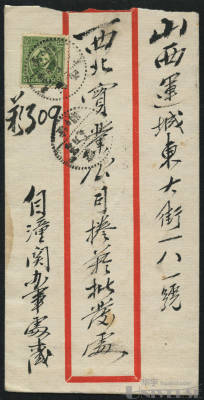 山西運城東大街一八一號
西北實業公司捲菸批發處
自潼関办事處
309